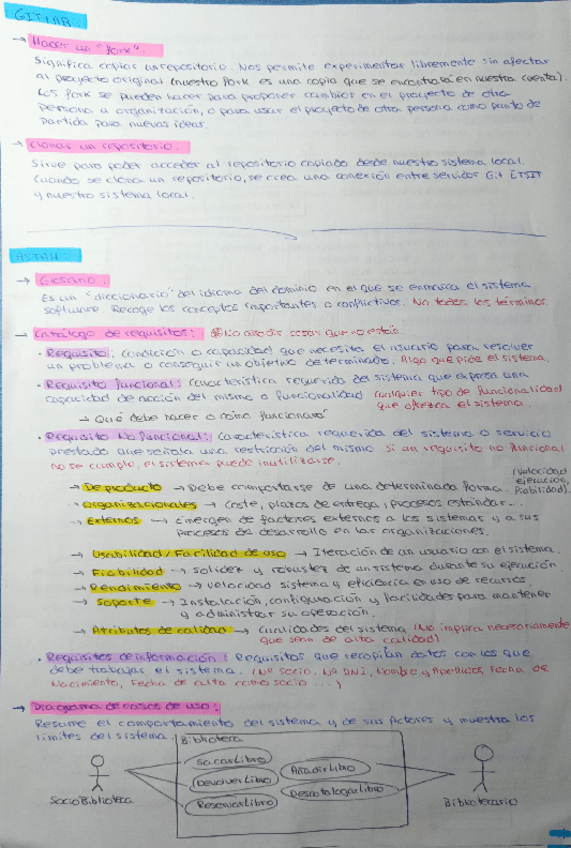 GITLAB:
→ Hacer un "fork":
Significa copiar un repositorio. Nos permite experimentar libremente sin afectar
al proyecto original (nuestro fork es una copia que se encontrará en nuestra cuenta).
Los fork se pueden hacer para proponer cambios en el proyecto de otra
persona u organización, o para usar el proyecto de otra persona como punto de
partida para nuevas ideas.
→ Clonar un repositorio.
Sirve para poder acceder al repositorio copiado desde nuestro sistema local.
Cuando se clona un repositorio, se crea una conexión entre servidor Git ETSIT
y nuestro sistema local.
ASTAH:
→ Glosario:
Es un "diccionario" del idioma del dominio en el que se enmarca el sistema
software. Recoge los conceptos importantes o conflictivos. No todos los términos.
→ Catálogo de requisitos: No añadir cosas que no están
· Requisito: Condición o capacidad que necesita el usuario para resolver
un problema o conseguir un objetivo determinado. Algo que pide el sistema.
· Requisito funcional: Característica requerida del sistema que expresa una
capacidad de acción del mismo o funcionalidad cualquier tipo de funcionalidad
que ofrezca el sistema.
→ Qué debe hacer o cómo funcionará
· Requisito No funcional: Característica requerida del sistema o servicio
prestado que señala una restricción del mismo Si un requisito no funcional
no se cumple, el sistema puede inutilizarse.
→ De producto → Debe comportarse de una determinada forma. (Velocidad ejecución, fiabilidad).
→ Organizacionales → Coste, plazos de entrega, procesos estándar...
→ Externos → Emergen de factores externos a los sistemas y a sus
procesos de desarrollo en las organizaciones.
→ Usabilidad / Facilidad de uso → Iteración de un usuario con el sistema.
→ Fiabilidad → Solidez y robustez de un sistema durante su ejecución
→ Rendimiento → Velocidad sistema y eficiencia en uso de recursos.
→ Soporte → Instalación, configuración y facilidades para mantener
y administrar su operación.
→ Atributos de calidad → Cualidades del sistema (No implica necesariamente
que sean de alta calidad)
· Requisitos de información: Requisitos que recopilan datos con los que
debe trabajar el sistema. (Nº Socio, Nº DNI, Nombre y Apellidos, Fecha de
Nacimiento, Fecha de alta como socio ...)
→ Diagrama de casos de uso:
Resume el comportamiento del sistema y de sus actores y muestra los
límites del sistema.
Biblioteca
SacarLibro
AñadirLibro
DevolverLibro
DescatalogarLibro
ReservarLibro
SocioBiblioteca
Bibliotecario